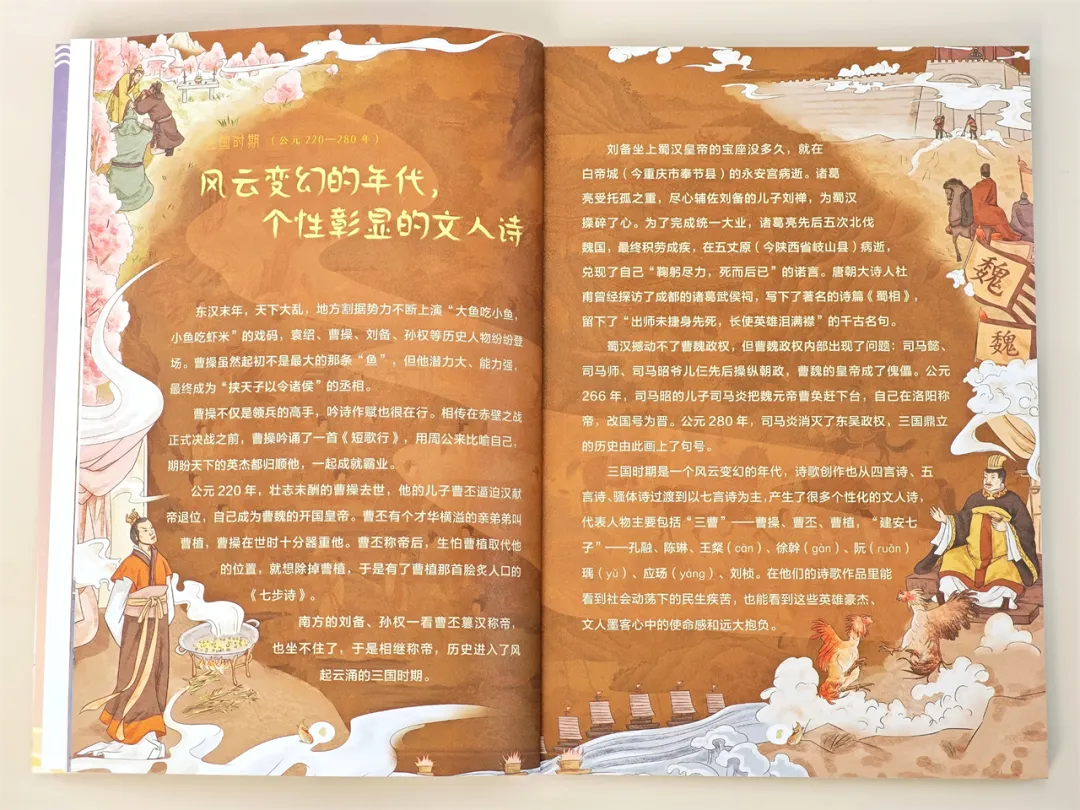 三国时期（公元 220—280 年）
风云变幻的年代，
个性彰显的文人诗
东汉末年，天下大乱，地方割据势力不断上演“大鱼吃小鱼，
小鱼吃虾米”的戏码，袁绍、曹操、刘备、孙权等历史人物纷纷登
场。曹操虽然起初不是最大的那条“鱼”，但他潜力大、能力强，
最终成为“挟天子以令诸侯”的丞相。
曹操不仅是领兵的高手，吟诗作赋也很在行。相传在赤壁之战
正式决战之前，曹操吟诵了一首《短歌行》，用周公来比喻自己，
期盼天下的英杰都归顺他，一起成就霸业。
公元 220 年，壮志未酬的曹操去世，他的儿子曹丕逼迫汉献
帝退位，自己成为曹魏的开国皇帝。曹丕有个才华横溢的亲弟弟叫
曹植，曹操在世时十分器重他。曹丕称帝后，生怕曹植取代他
的位置，就想除掉曹植，于是有了曹植那首脍炙人口的
《七步诗》。
南方的刘备、孙权一看曹丕篡汉称帝，
也坐不住了，于是相继称帝，历史进入了风
起云涌的三国时期。
刘备坐上蜀汉皇帝的宝座没多久，就在
白帝城（今重庆市奉节县）的永安宫病逝。诸葛
亮受托孤之重，尽心辅佐刘备的儿子刘禅，为蜀汉
操碎了心。为了完成统一大业，诸葛亮先后五次北伐
魏国，最终积劳成疾，在五丈原（今陕西省岐山县）病逝，
兑现了自己“鞠躬尽力，死而后已”的诺言。唐朝大诗人杜
甫曾经探访了成都的诸葛武侯祠，写下了著名的诗篇《蜀相》，
留下了“出师未捷身先死，长使英雄泪满襟”的千古名句。
蜀汉撼动不了曹魏政权，但曹魏政权内部出现了问题：司马懿、
司马师、司马昭爷儿仨先后操纵朝政，曹魏的皇帝成了傀儡。公元
266 年，司马昭的儿子司马炎把魏元帝曹奂赶下台，自己在洛阳称
帝，改国号为晋。公元 280 年，司马炎消灭了东吴政权，三国鼎立
的历史由此画上了句号。
三国时期是一个风云变幻的年代，诗歌创作也从四言诗、五
言诗、骚体诗过渡到以七言诗为主，产生了很多个性化的文人诗，
代表人物主要包括“三曹”——曹操、曹丕、曹植，“建安七
子”——孔融、陈琳、王粲（càn）、徐幹（gàn）、阮（ruǎn）
瑀（yǔ）、应玚（yáng）、刘桢。在他们的诗歌作品里能
看到社会动荡下的民生疾苦，也能看到这些英雄豪杰、
文人墨客心中的使命感和远大抱负。
魏
魏